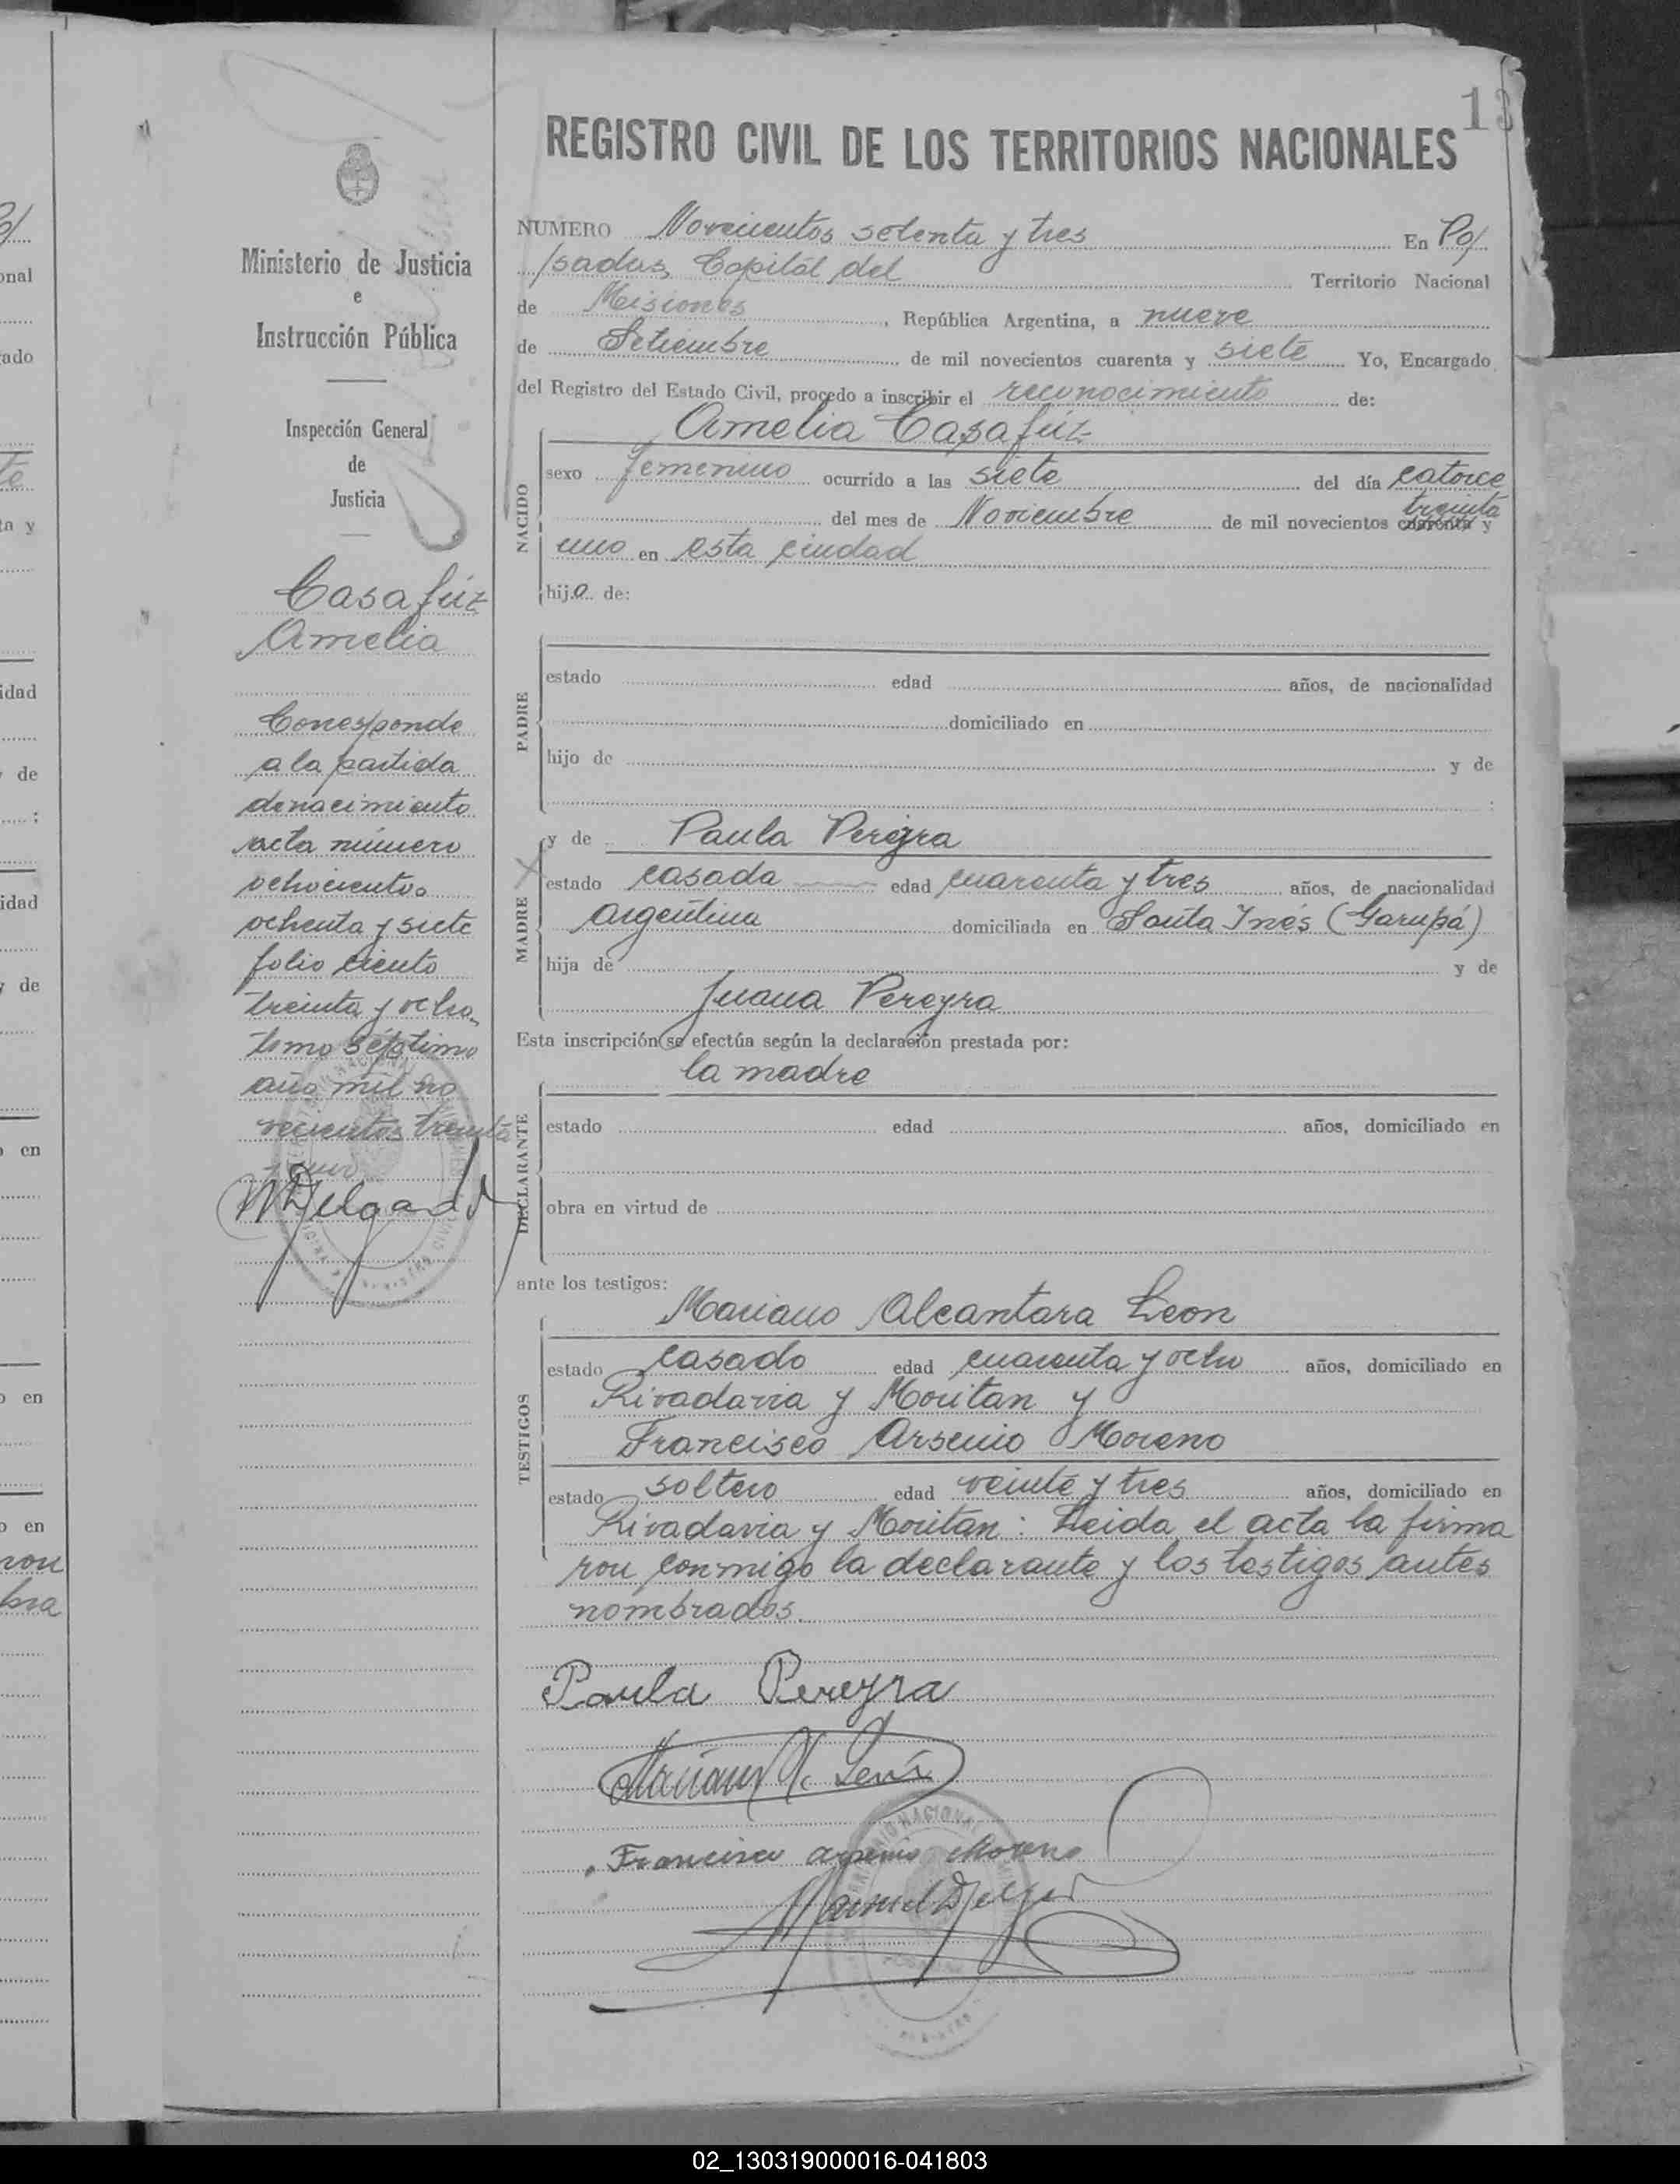 13
REGISTRO CIVIL DE LOS TERRITORIOS NACIONALES
Ministerio de Justicia
e
Instrucción Pública
Inspección General
de
Justicia
Casafúz
Amelia
Corresponde
a la partida
de nacimiento
acta número
ochocientos
ochenta y siete
folio ciento
treinta y ocho
tomo séptimo
año mil no
vecientos treinta
y uno
MDelgado
NUMERO Novecientos setenta y tres En Po/
/sadas, Capital del Territorio Nacional
de Misiones, República Argentina, a nueve
de Setiembre de mil novecientos cuarenta y siete Yo, Encargado
del Registro del Estado Civil, procedo a inscribir el reconocimiento de:
Amelia Casafúz
NACIDO
sexo femenino ocurrido a las siete del día catorce
treinta
del mes de Noviembre de mil novecientos cuarenta y
uno en esta ciudad
hija de:
PADRE
estado edad años, de nacionalidad
domiciliado en
hijo de y de
:
y de Paula Pereyra
MADRE
estado casada edad cuarenta y tres años, de nacionalidad
argentina domiciliada en Santa Inés (Garupá)
hija de y de
Juana Pereyra
Esta inscripción se efectúa según la declaración prestada por:
la madre
DECLARANTE
estado edad años, domiciliado en
obra en virtud de
ante los testigos:
Mariano Alcantara Leon
TESTIGOS
estado casado edad cuarenta y ocho años, domiciliado en
Rivadavia y Moritan y
Francisco Arsenio Moreno
estado soltero edad veinte y tres años, domiciliado en
Rivadavia y Moritan: Leida el acta la firma
ron conmigo la declarante y los testigos antes
nombrados.
Paula Pereyra
Mariano A. León
Francisco arsenio Moreno
Manuel Delgado
02_130319000016-041803